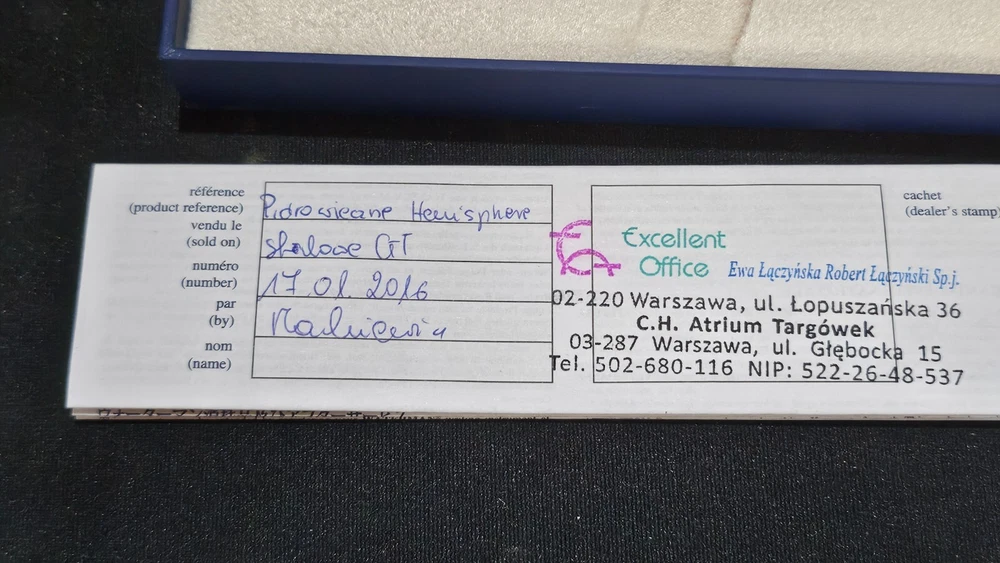 référence
(product reference)
vendu le
(sold on)
numéro
(number)
par
(by)
nom
(name)
Pidrowieczne Hemisphere
stalowe GT
17.01.2016
cachet
(dealer's stamp)
Excellent
Office Ewa Łączyńska Robert Łączyński Sp.j.
02-220 Warszawa, ul. Łopuszańska 36
C.H. Atrium Targówek
03-287 Warszawa, ul. Głębocka 15
Tel. 502-680-116 NIP: 522-26-48-537